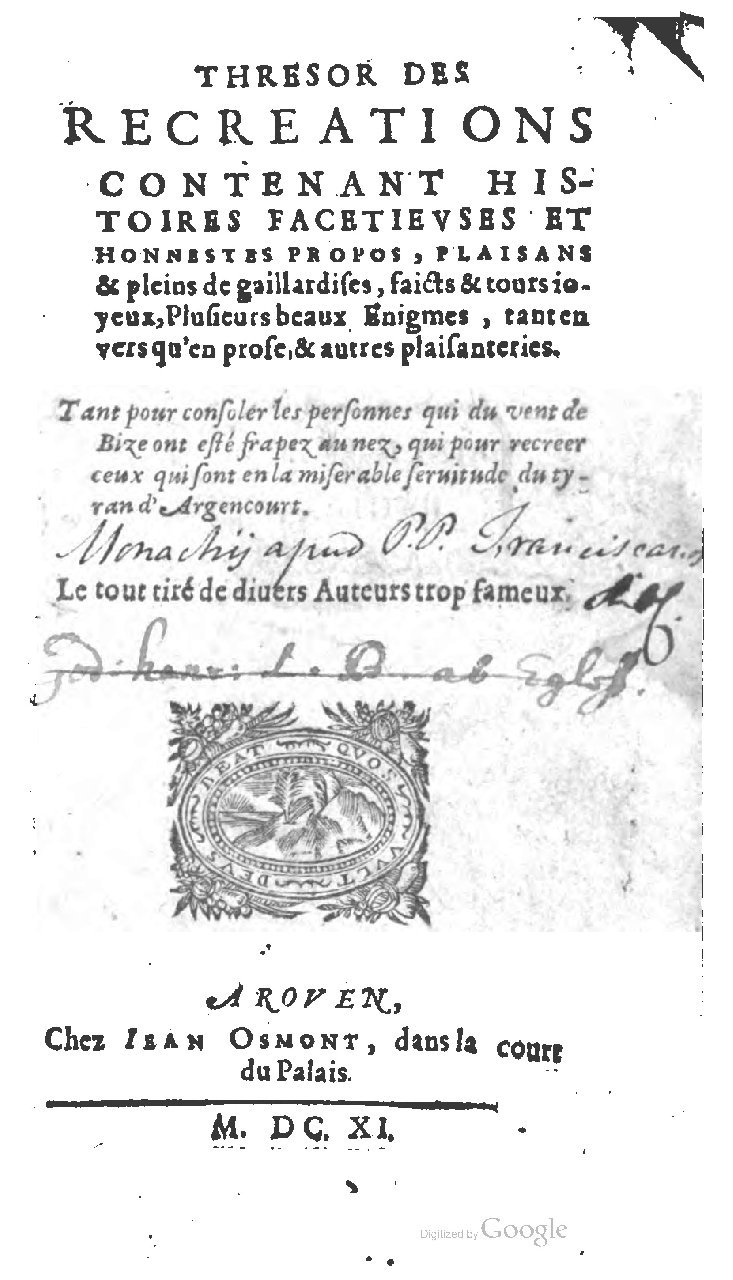 THRESOR DES
RECREATIONS
CONTENANT HIS-
TOIRES FACETIEVSES ET
HONNESTES PROPOS, PLAISANS
& pleins de gaillardiſes, faicts & tours io-
yeux, Pluſieurs beaux Enigmes, tant en
vers qu'en proſe, & autres plaiſanteries.
Tant pour conſoler les perſonnes qui du vent de
Bize ont eſté frapez au nez, qui pour recreer
ceux qui ſont en la miſerable ſeruitude du ty-
ran d'Argencourt.
Monachij apud P.P. Franciscanos
Le tout tiré de diuers Auteurs trop fameux.
ab
BEAT QVOS VVLT DEVS
A ROVEN,
Chez IEAN OSMONT, dans la court
du Palais.
M. DC. XI.
Digitized by Google